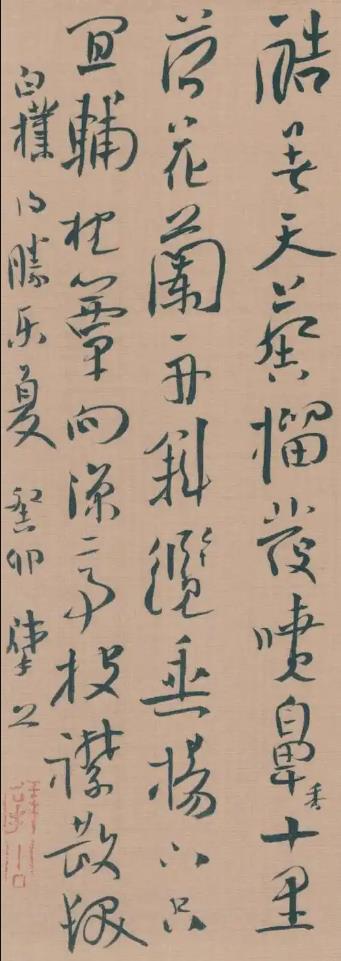 酷暑天葵榴發噴鼻香十里
荷花蘭舟斜纜垂楊下只
宜輔枕簟向涼亭披襟散髮
白樸得勝乐夏 癸卯